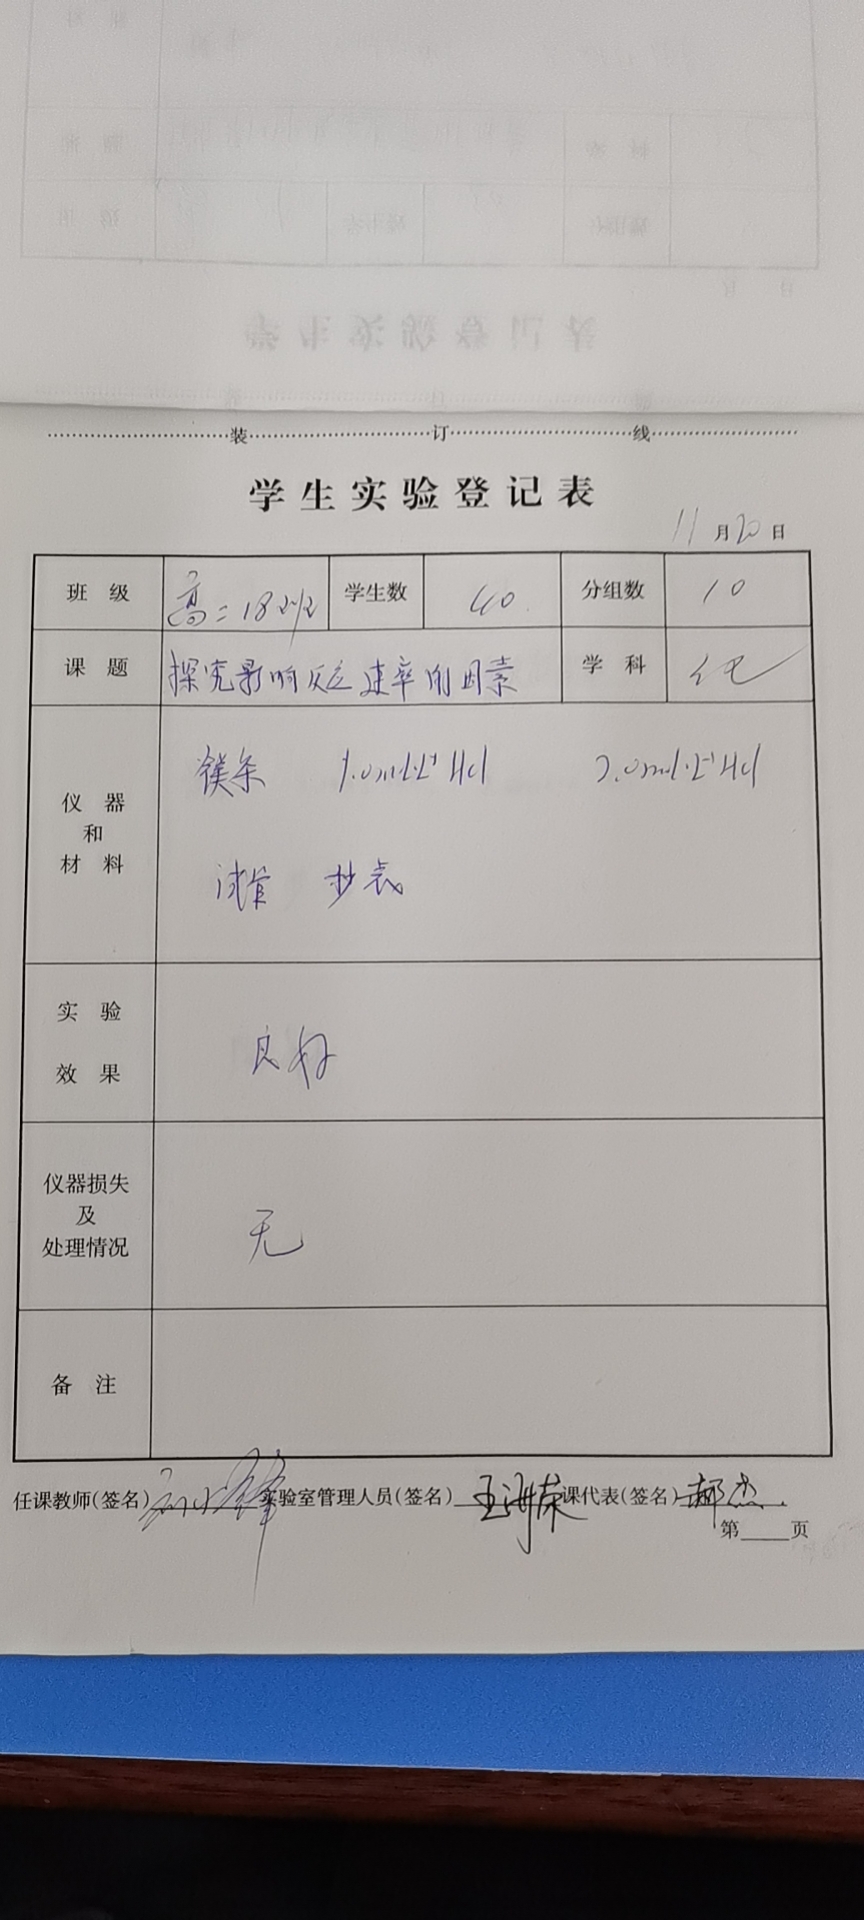 装 订 线
学生实验登记表
11月20日
班级 高二18班 学生数 40 分组数 10
课题 探究影响反应速率的因素 学科 化
仪器和材料 镁条 1.0mol·L⁻¹ HCl mol·L⁻¹ HCl
试管 秒表
实验效果 良好
仪器损失及处理情况 无
备注
任课教师(签名) 实验室管理人员(签名) 王海荣 课代表(签名) 郝杰
第 页